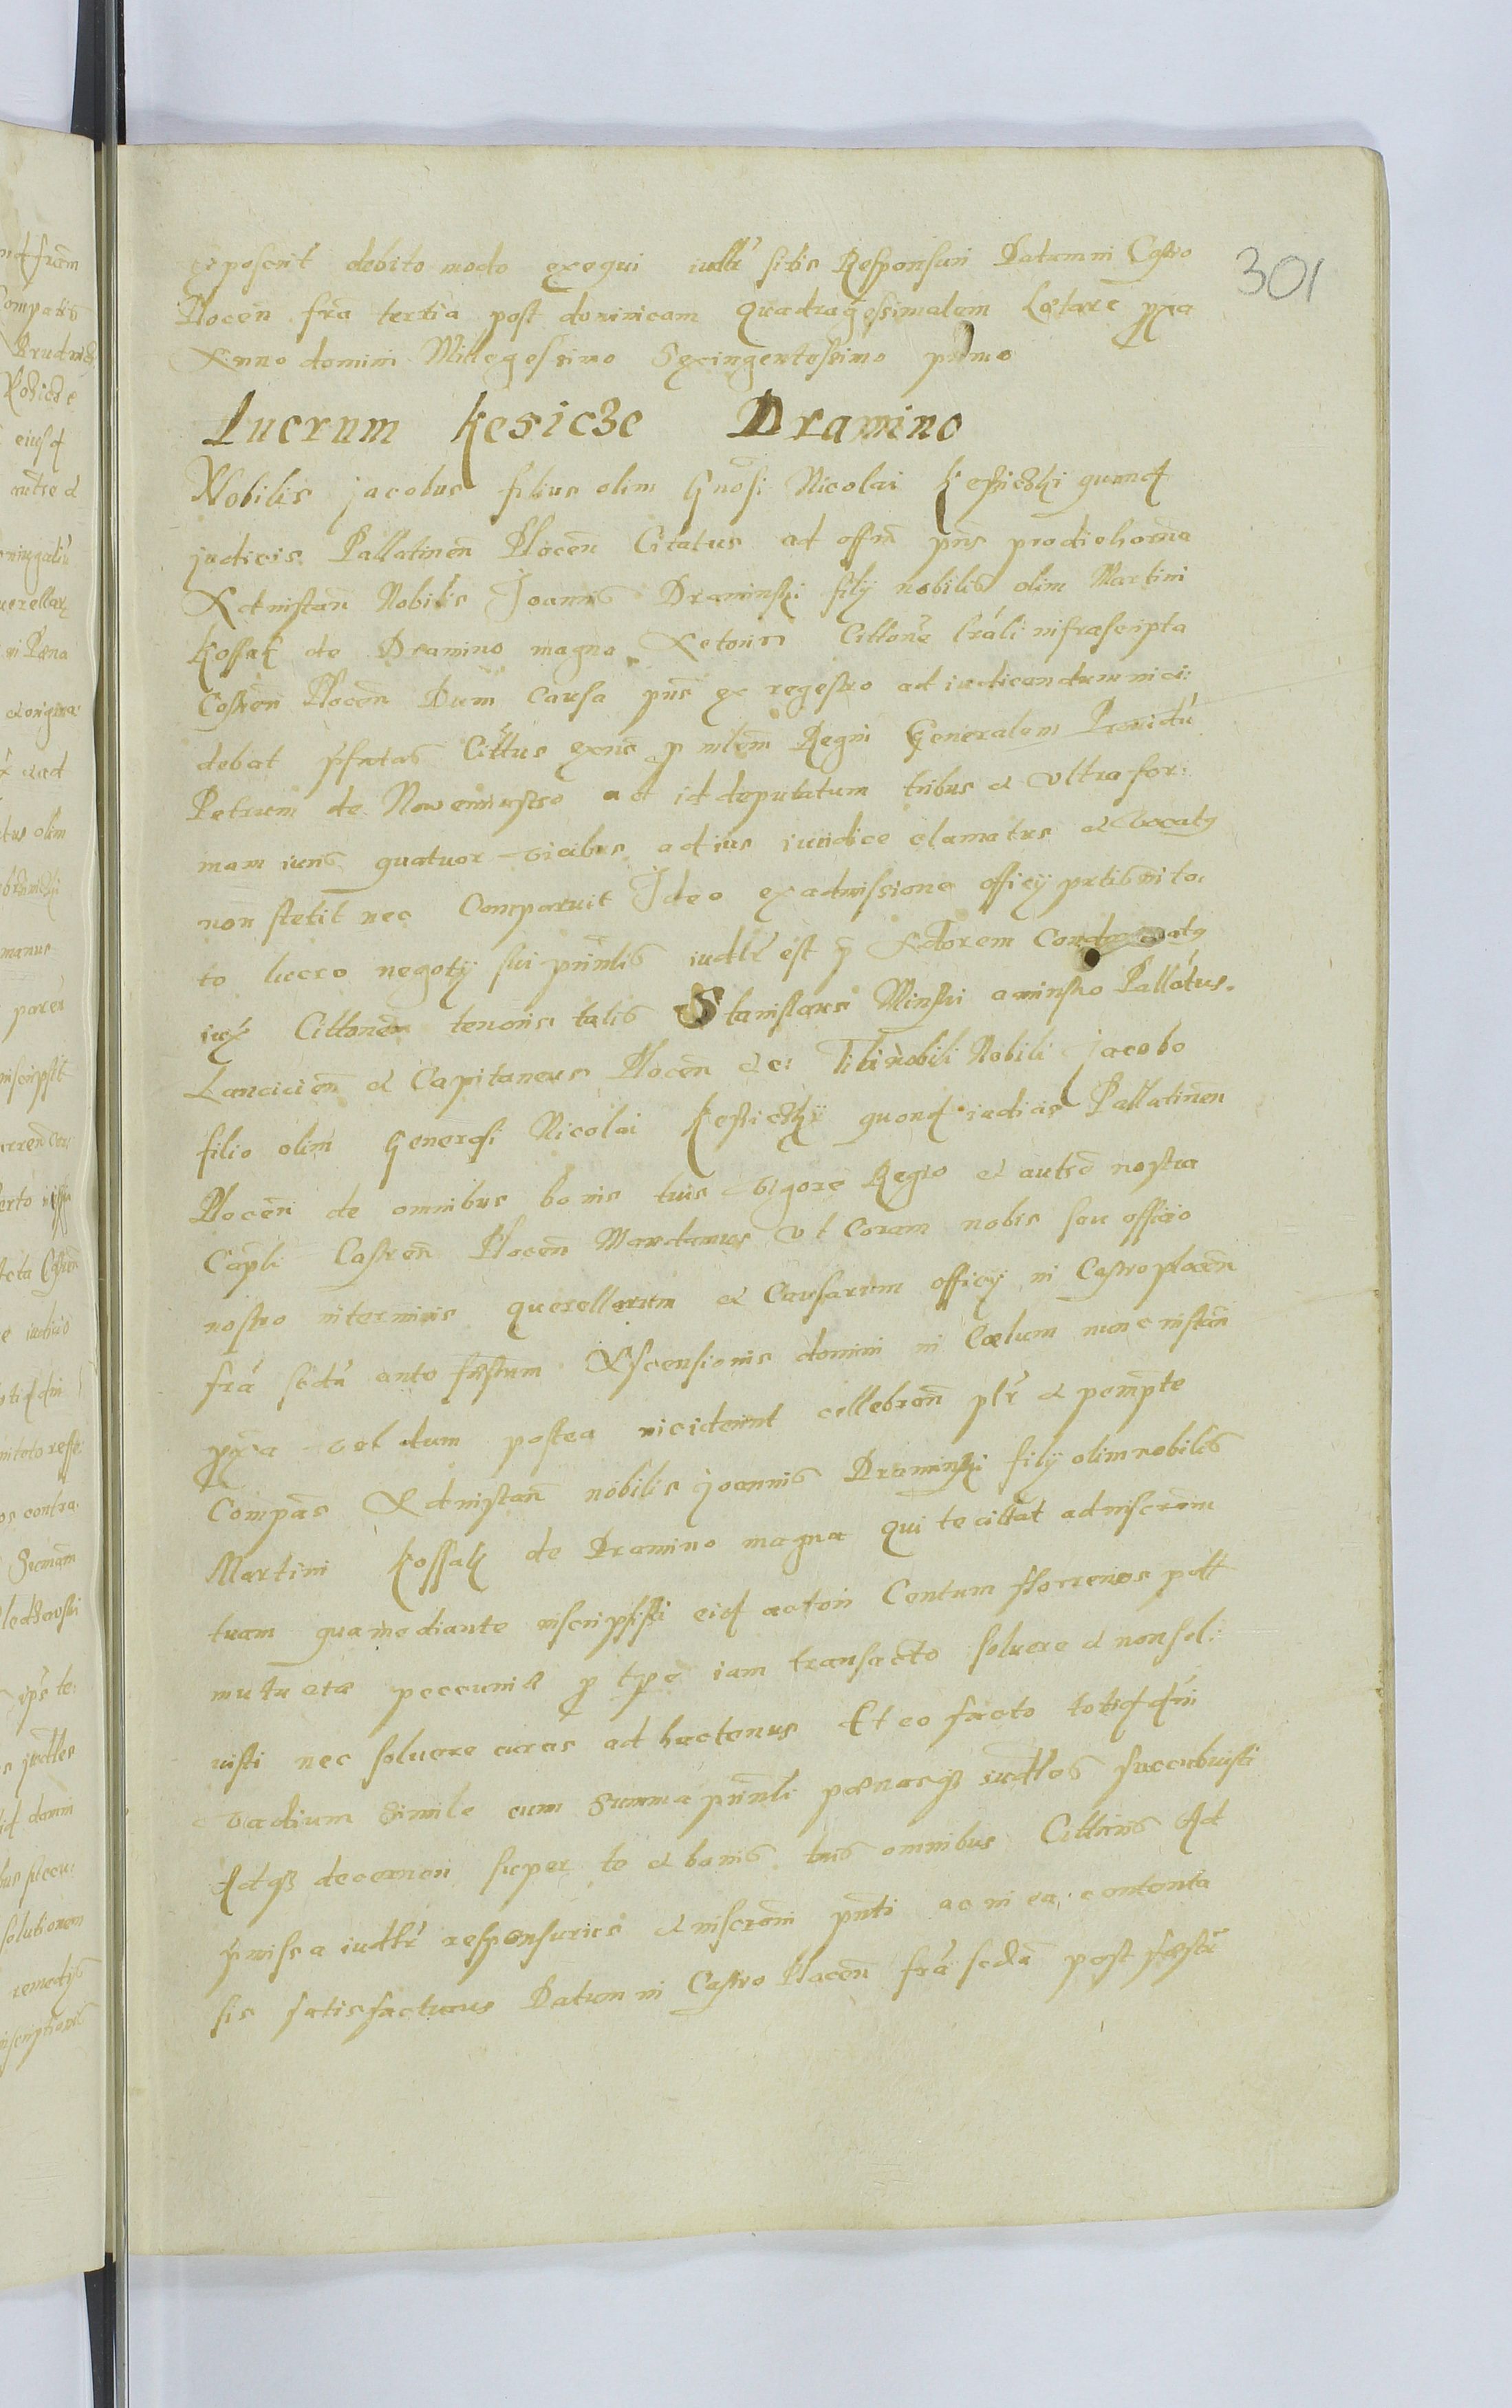 exposcit debito modo exequi iudtr sitis Responsuri Datum in Castro
Plocen fra tertia post dominicam Quadragessimalem Lætare pxa
Anno domini Millegessimo Sexingentessimo primo
301
Lucrum Kesicze Dramino
Nobilis jacobus filius olim Gnosi Nicolai Kessiczki quond
judicis Pallatinen Plocen Citatus ad offm pns pro die hoerna
Ad instan Nobilis Joannis Draminski filij nobilis olim Martini
Kossak de Dramino magna Actoris Cittone lrali infrascripta
Castren Plocen Dum Causa pns ex regestro ad iudicandum inci:
debat pfatus Cittus exns p mlem Regni Generalem Providu
Petrum de Nowemiasto ad id deputatum tribus et vltra for:
mam iuris quatuor vicibus ad ius iuridice clamatus et vocatg
non stetit nec Comparuit Ideo ex admissione officij prtis in to:
to lucro negotij sui prinlis iudtr est p Actorem Condemnatg
iux Cittonem tenoris talis Stanislaus Minski a minsko Pallatus
Lancicien et Capitaneus Plocen etc: Tibi nobili Nobili jacobo
filio olim Generosi Nicolai Kessiczky quond iudicis Pallatinen
Plocen de omnibus bonis tuis vigore Regio et autre nostra
Capli Castren Plocen Mandamus vt Coram nobis seu officio
nostro in terminis querellarum et Causarum officij in Castro plocen
fra scda ante festum Ascensionis domini in Cælum nunc instan
pxa vel dum postea inciderint cellebran plr et pemptе
Compas Ad instan nobilis joannis Draminski filij olim nobilis
Martini Kossak de Dramino magna qui te cittat ad inscrom
tuam qua mediante inscripsisti eid actori Centum florrenos poll
mutuatæ peccuniæ p tpe iam transacto soluere et non sol:
uisti nec soluere curas ad hactenus Et eo facto totid din
vadium simile cum summa prinli pænasq iudtles succubuisti
Adq decerneri super te et bonis tuis omnibus Cittaris Ad
pmissa iudtr responsurus et inscrom pnti ac in ea contenta
sis satisfacturus Datum in Castro Plocen fra scda post festu